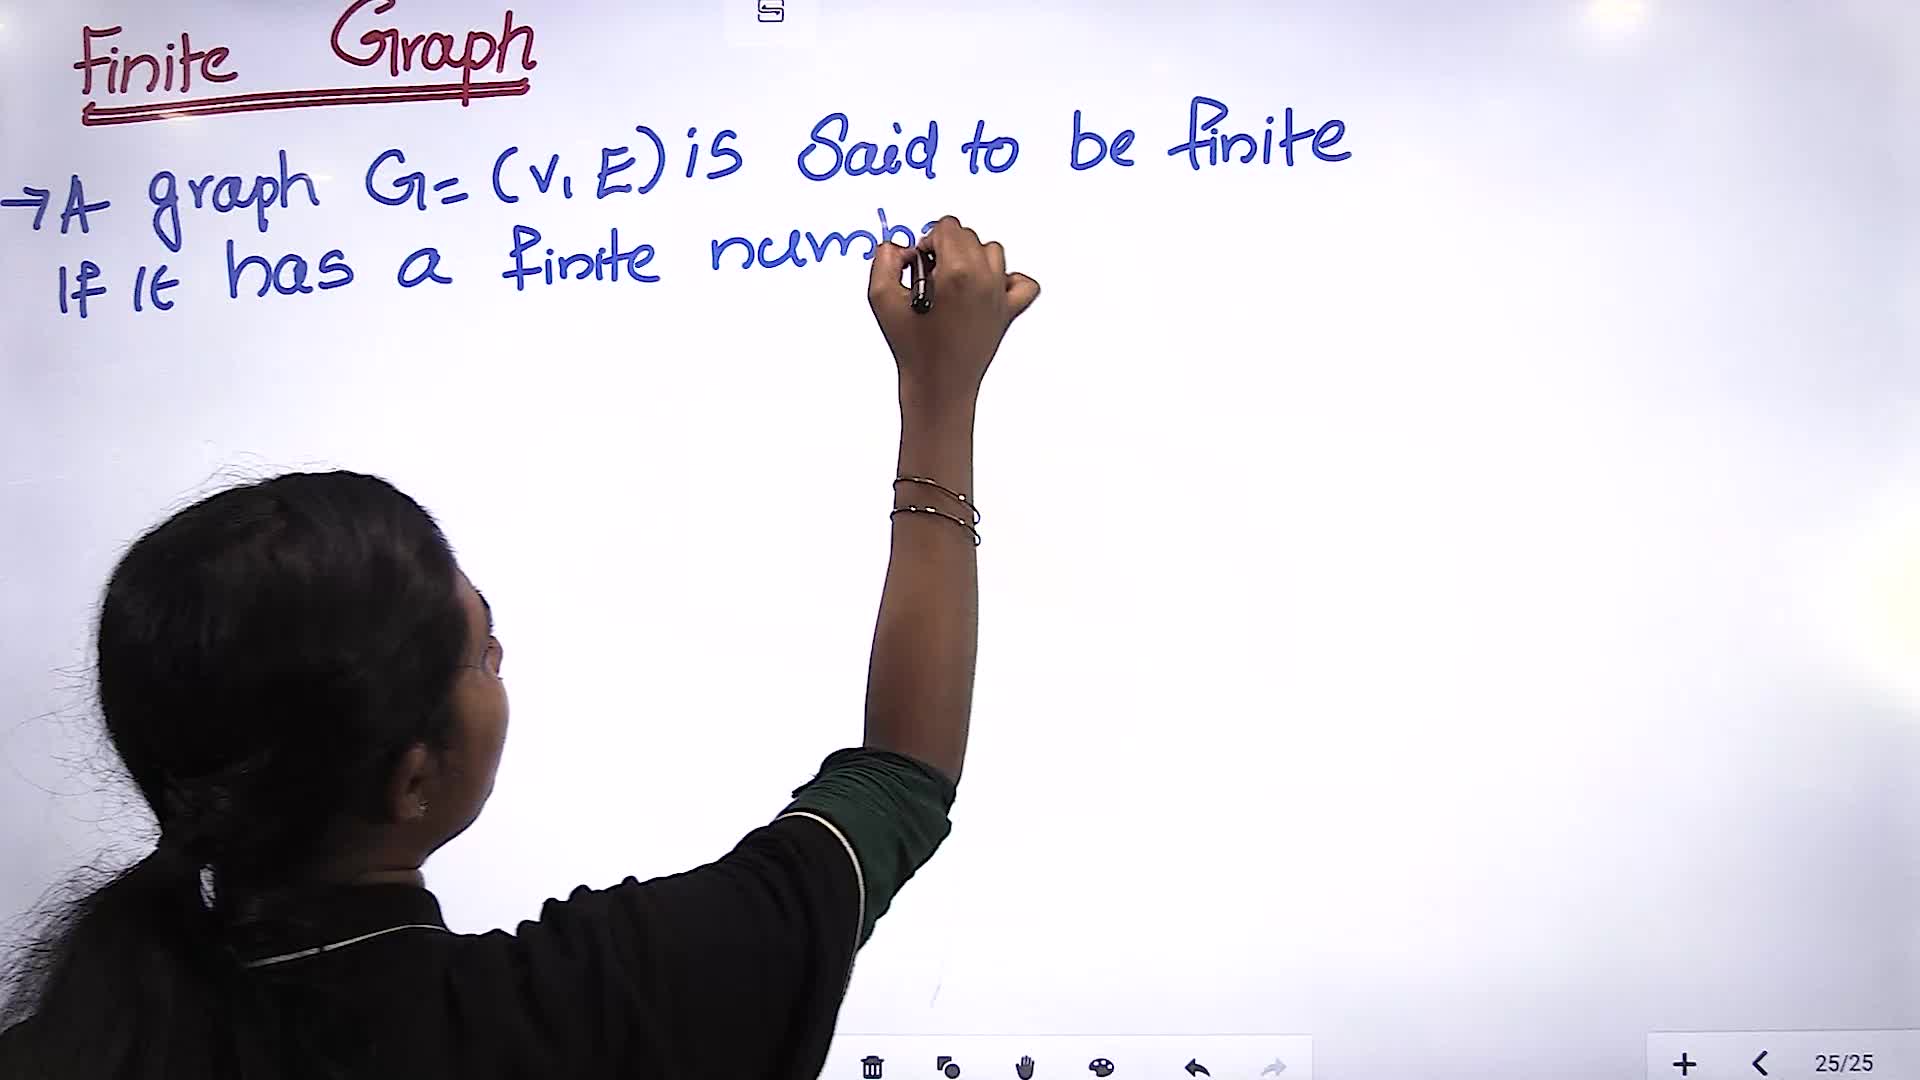 Finite Graph
→A graph G=(V, E) is Said to be finite
If it has a finite numbe
25/25